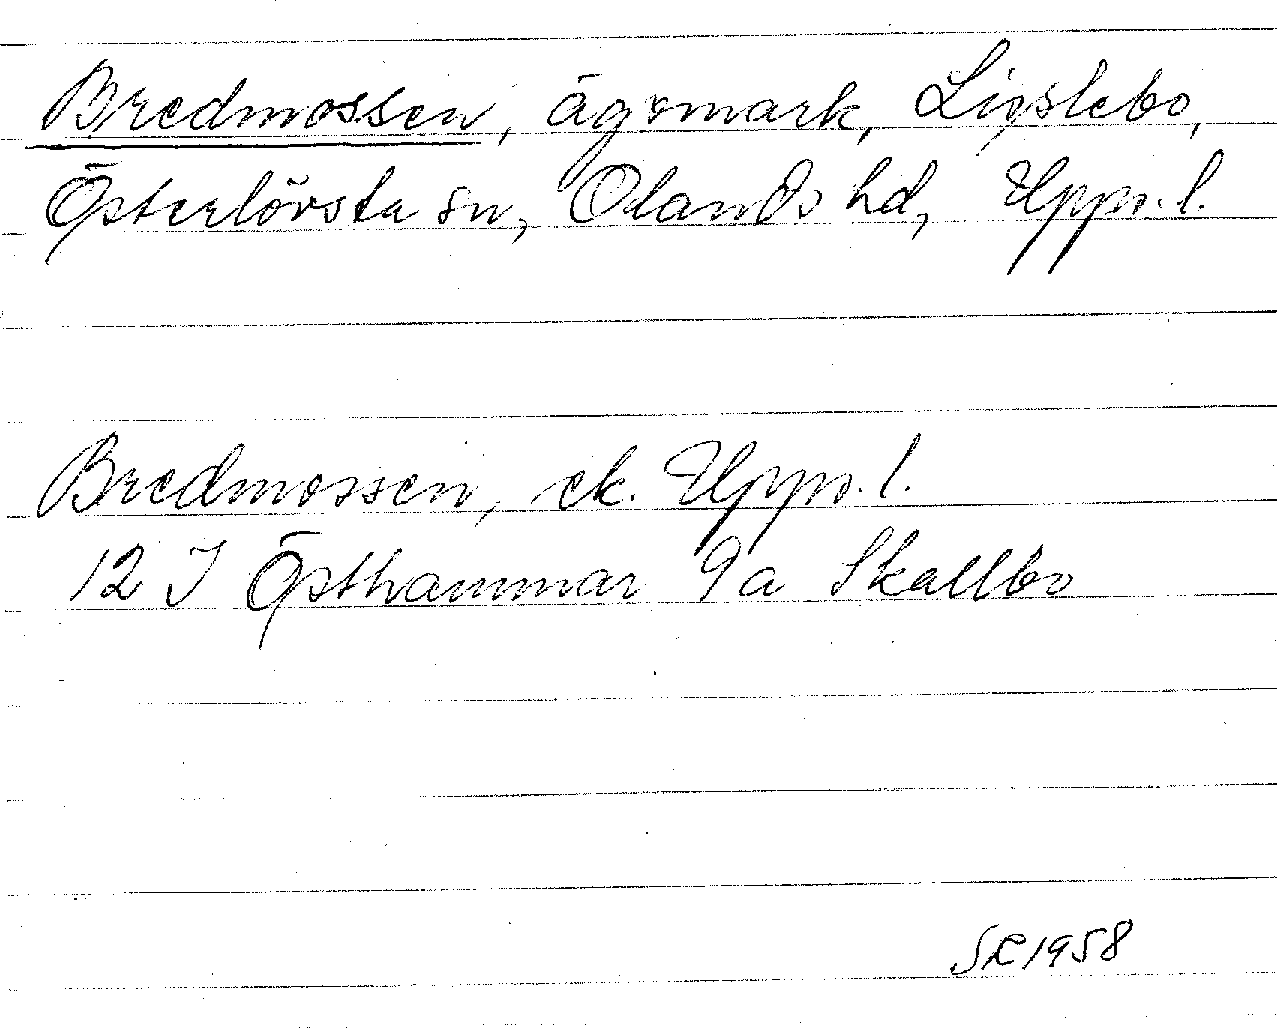 Bredmossen, ägomark, Ligslebo,
Österlövsta sn, Olands hd, Upps. l.
Bredmossen, ek. Upps. l.
12 I Östhammar 9a Skallbo
SR 1958